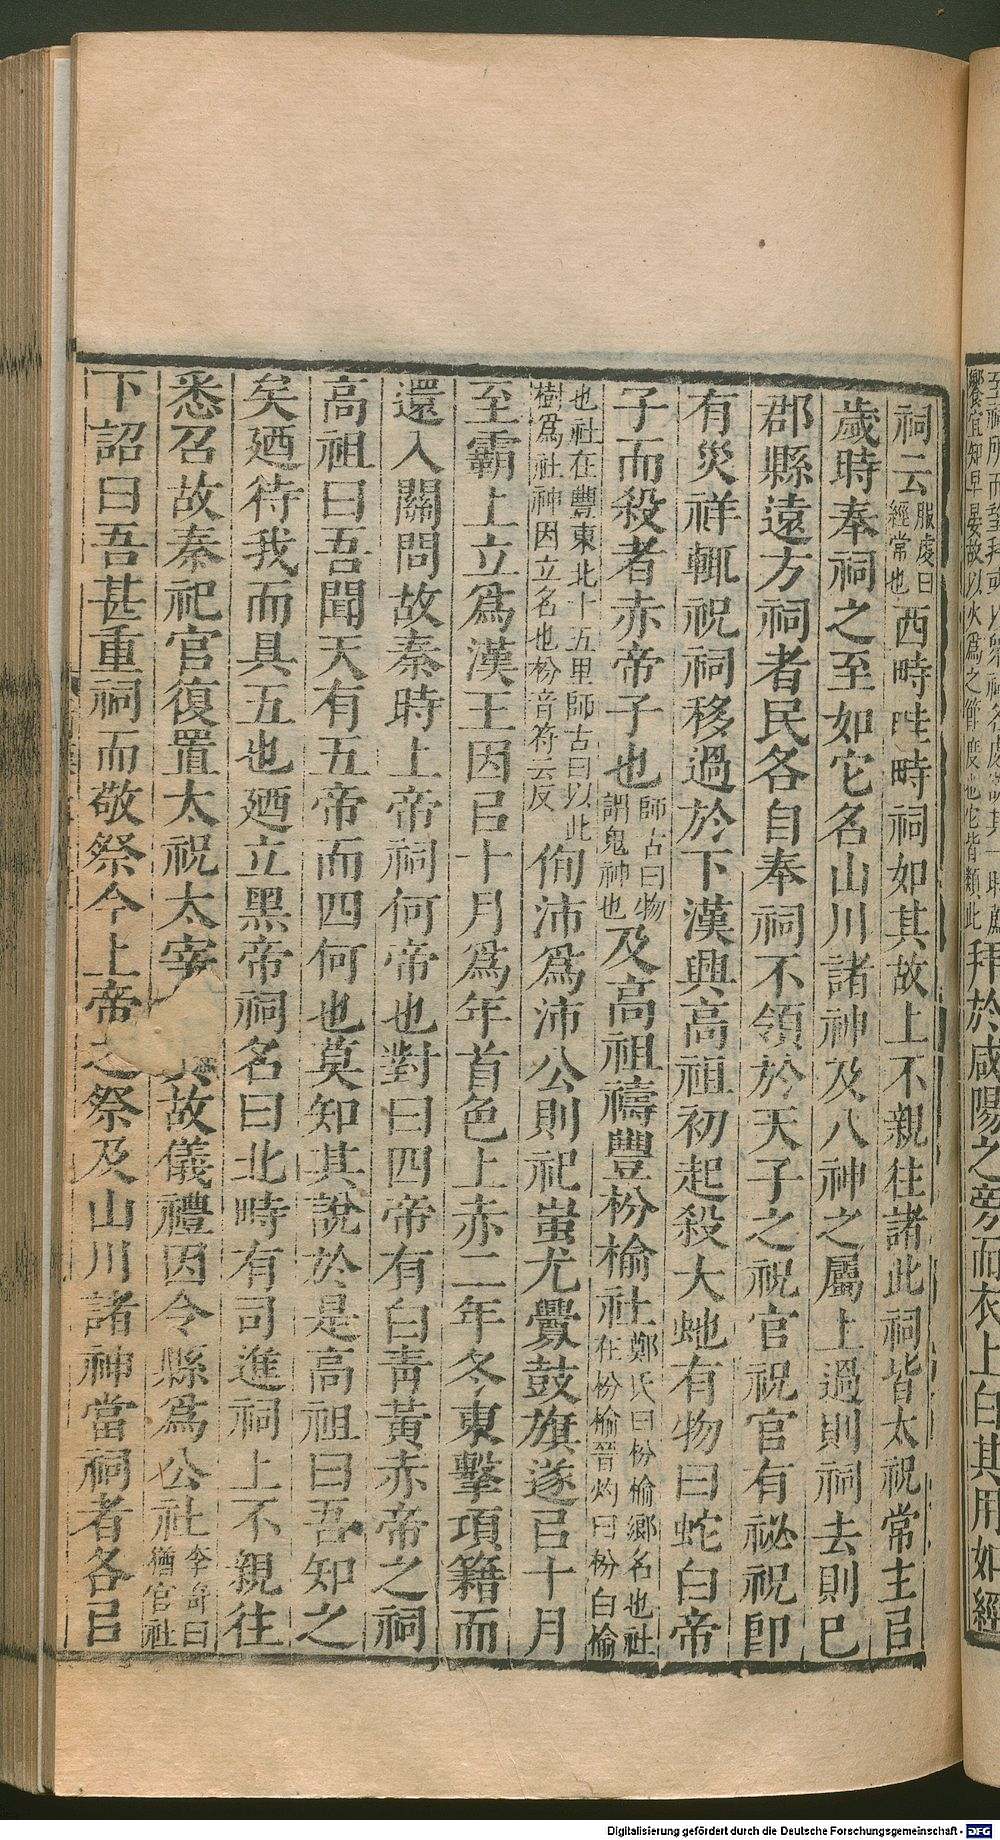 祠云服虔曰經常也西畤畦畤祠如其故上不親往諸此祠皆太祝常主㠯
歲時奉祠之至如它名山川諸神及八神之屬上過則祠去則巳
郡縣遠方祠者民各自奉祠不領於天子之祝官祝官有祕祝卽
有災祥輒祝祠移過於下漢興高祖初起殺大虵有物曰蛇白帝
子而殺者赤帝子也師古曰物謂鬼神也及高祖禱豐枌榆社鄭氏曰枌榆鄉名也社在枌榆晉灼曰枌白榆
也社在豐東北十五里師古曰以此樹爲社神因立名也枌音符云反侚沛爲沛公則祀蚩尤釁鼓旗遂㠯十月
至霸上立爲漢王因㠯十月爲年首色上赤二年冬東擊項籍而
還入關問故秦時上帝祠何帝也對曰四帝有白靑黃赤帝之祠
高祖曰吾聞天有五帝而四何也莫知其說於是高祖曰吾知之
矣廼待我而具五也廼立黑帝祠名曰北畤有司進祠上不親往
悉召故秦祀官復置太祝太宰故儀禮因令縣爲公社李奇曰猶官社
下詔曰吾甚重祠而敬祭今上帝之祭及山川諸神當祠者各㠯
拜於咸陽之旁而衣上白其用如經
Digitalisierung gefördert durch die Deutsche Forschungsgemeinschaft - DFG